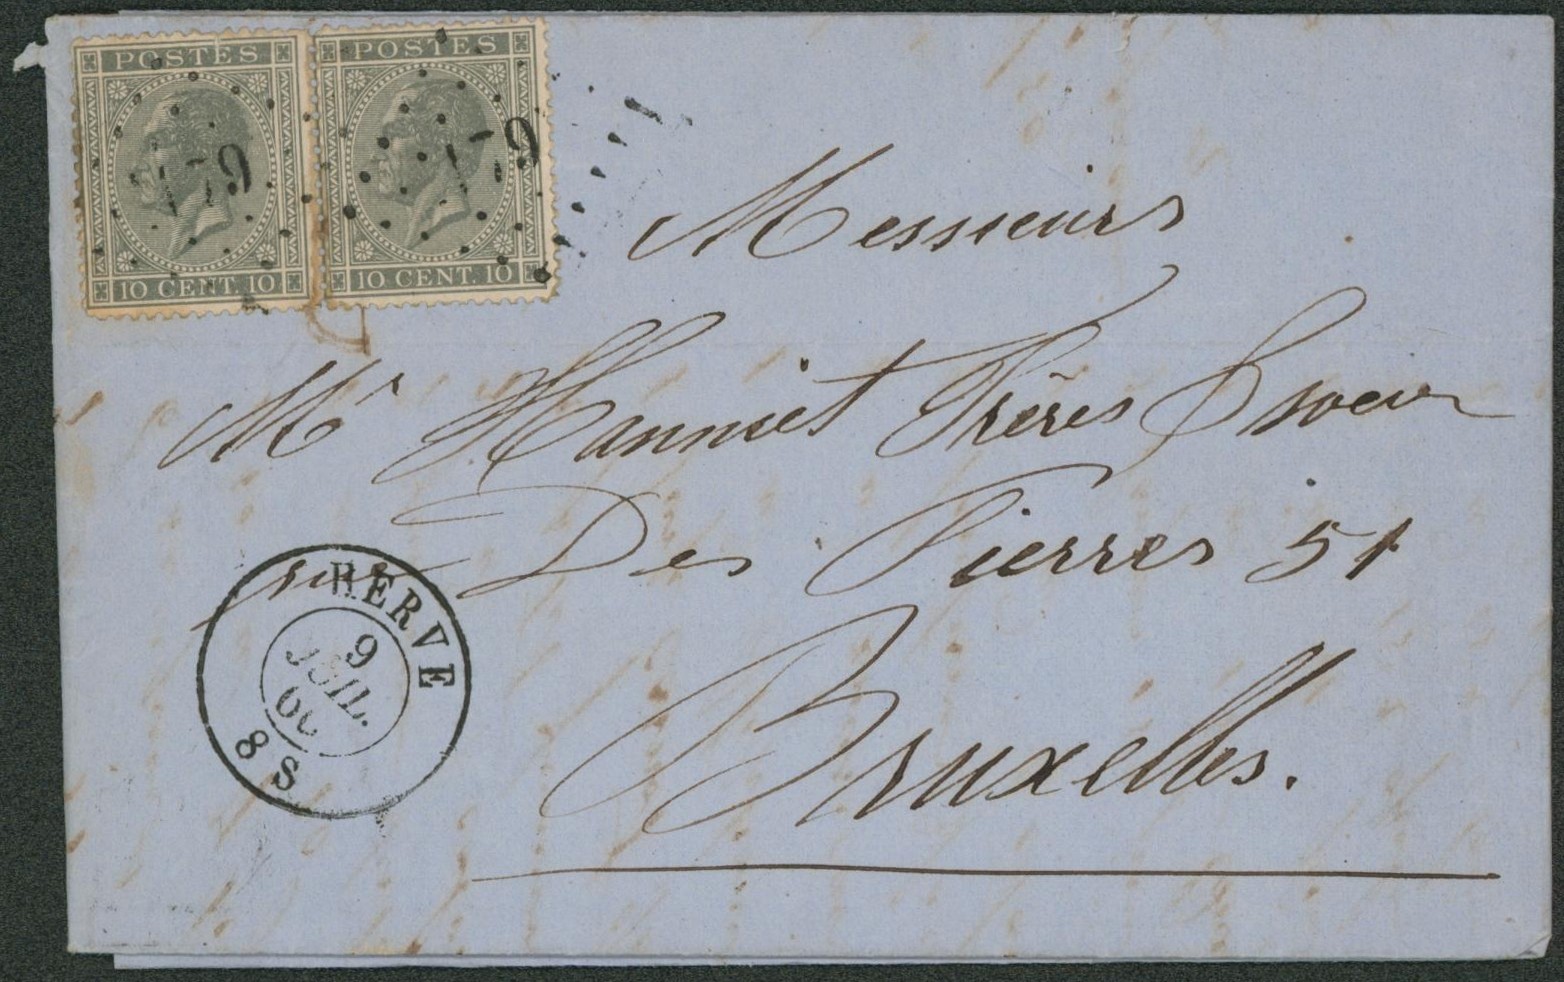 POSTES
10 CENT. 10
POSTES
10 CENT. 10
179
179
Messieurs
Mrs Hanniet Frères & Soeur
rue Des Pierres 51
Bruxelles.
HERVE
9
JUIL.
8 S